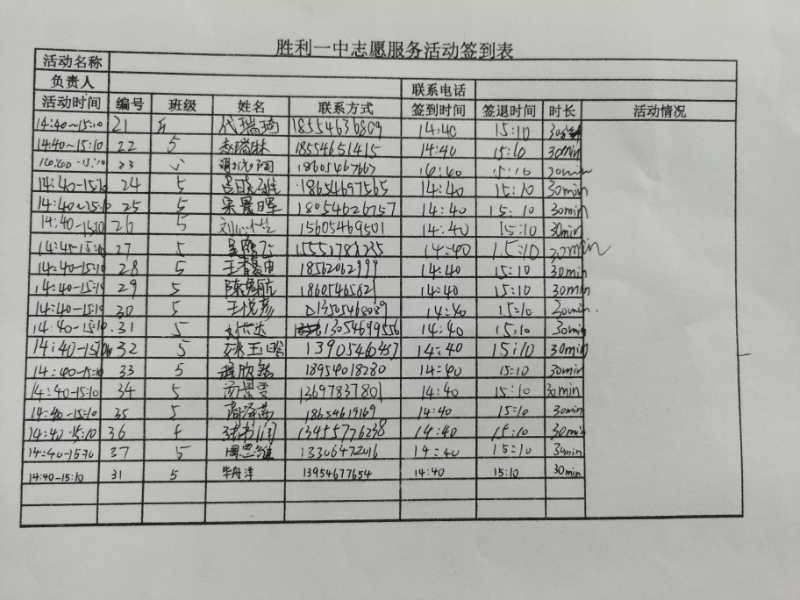 胜利一中志愿服务活动签到表
活动名称
负责人 联系电话
活动时间 编号 班级 姓名 联系方式 签到时间 签退时间 时长 活动情况
14:40~15:10 21 代瑞琦 18554636809 14:40 15:10
14:40~15:10 22 5 18554651415 14:40 15:10 30min
23 18605467667 15:10 30min
14:40-15:10 24 5 18654697565 14:40 15:10 30min
14:40-15:10 25 5 梁晨晖 18054626757 14:40 15:10 30min
14:40-15:10 26 5 15605469501 14:40 15:10 30min
27 5 14:40 15:10 30min
14:40-15:10 28 5 18562062999 14:40 15:10 30min
14:40-15:10 29 5 14:40 15:10 30min
14:40-15:10 30 5 王悦彦 13505468089 14:40 15:10 30min
14:40-15:10 31 5 13054699556 14:40 15:10 30min
14:40-15:10 32 5 14:40 15:10 30min
14:40-15:10 33 5 18954018280 14:40 15:10 30min
14:40-15:10 34 5 13697837801 14:40 15:10 30min
14:40-15:10 35 5 18654619169 14:40 15:10 30min
14:40-15:10 36 13455776238 14:40 15:10 30min
14:40-15:10 37 5 周思维 13306472016 14:40 15:10 30min
14:40-15:10 31 5 13954677654 14:40 15:10 30min